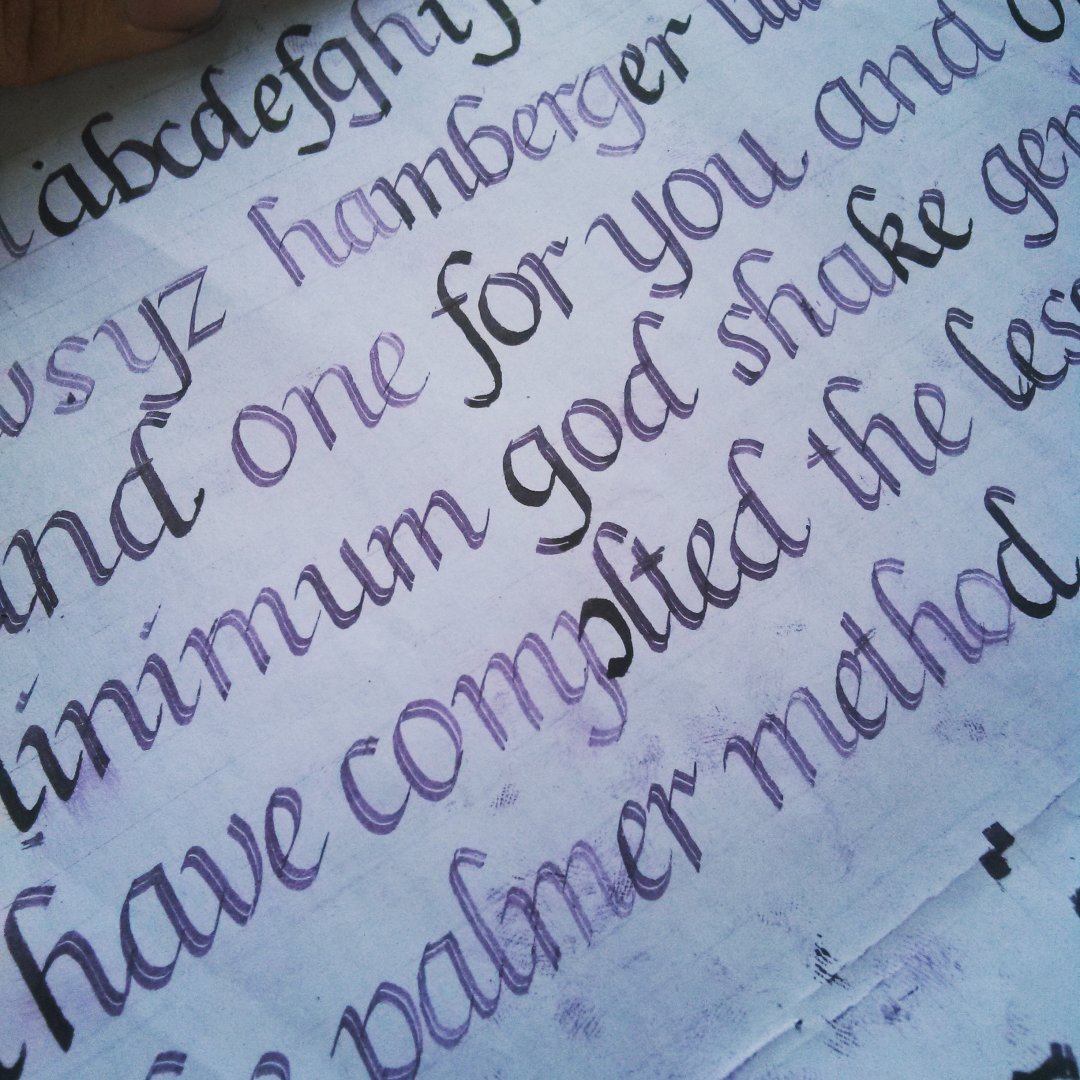 abcdefghij
syz hamberger
and one for you and
minimum god shake
have complted the
palmer method